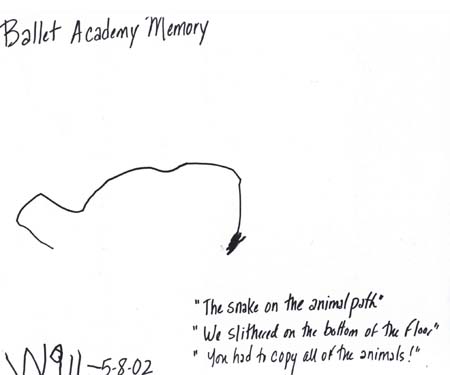 Ballet Academy Memory
"The snake on the animal path"
"We slithered on the bottom of the floor"
"You had to copy all of the animals!"
-5-8-02